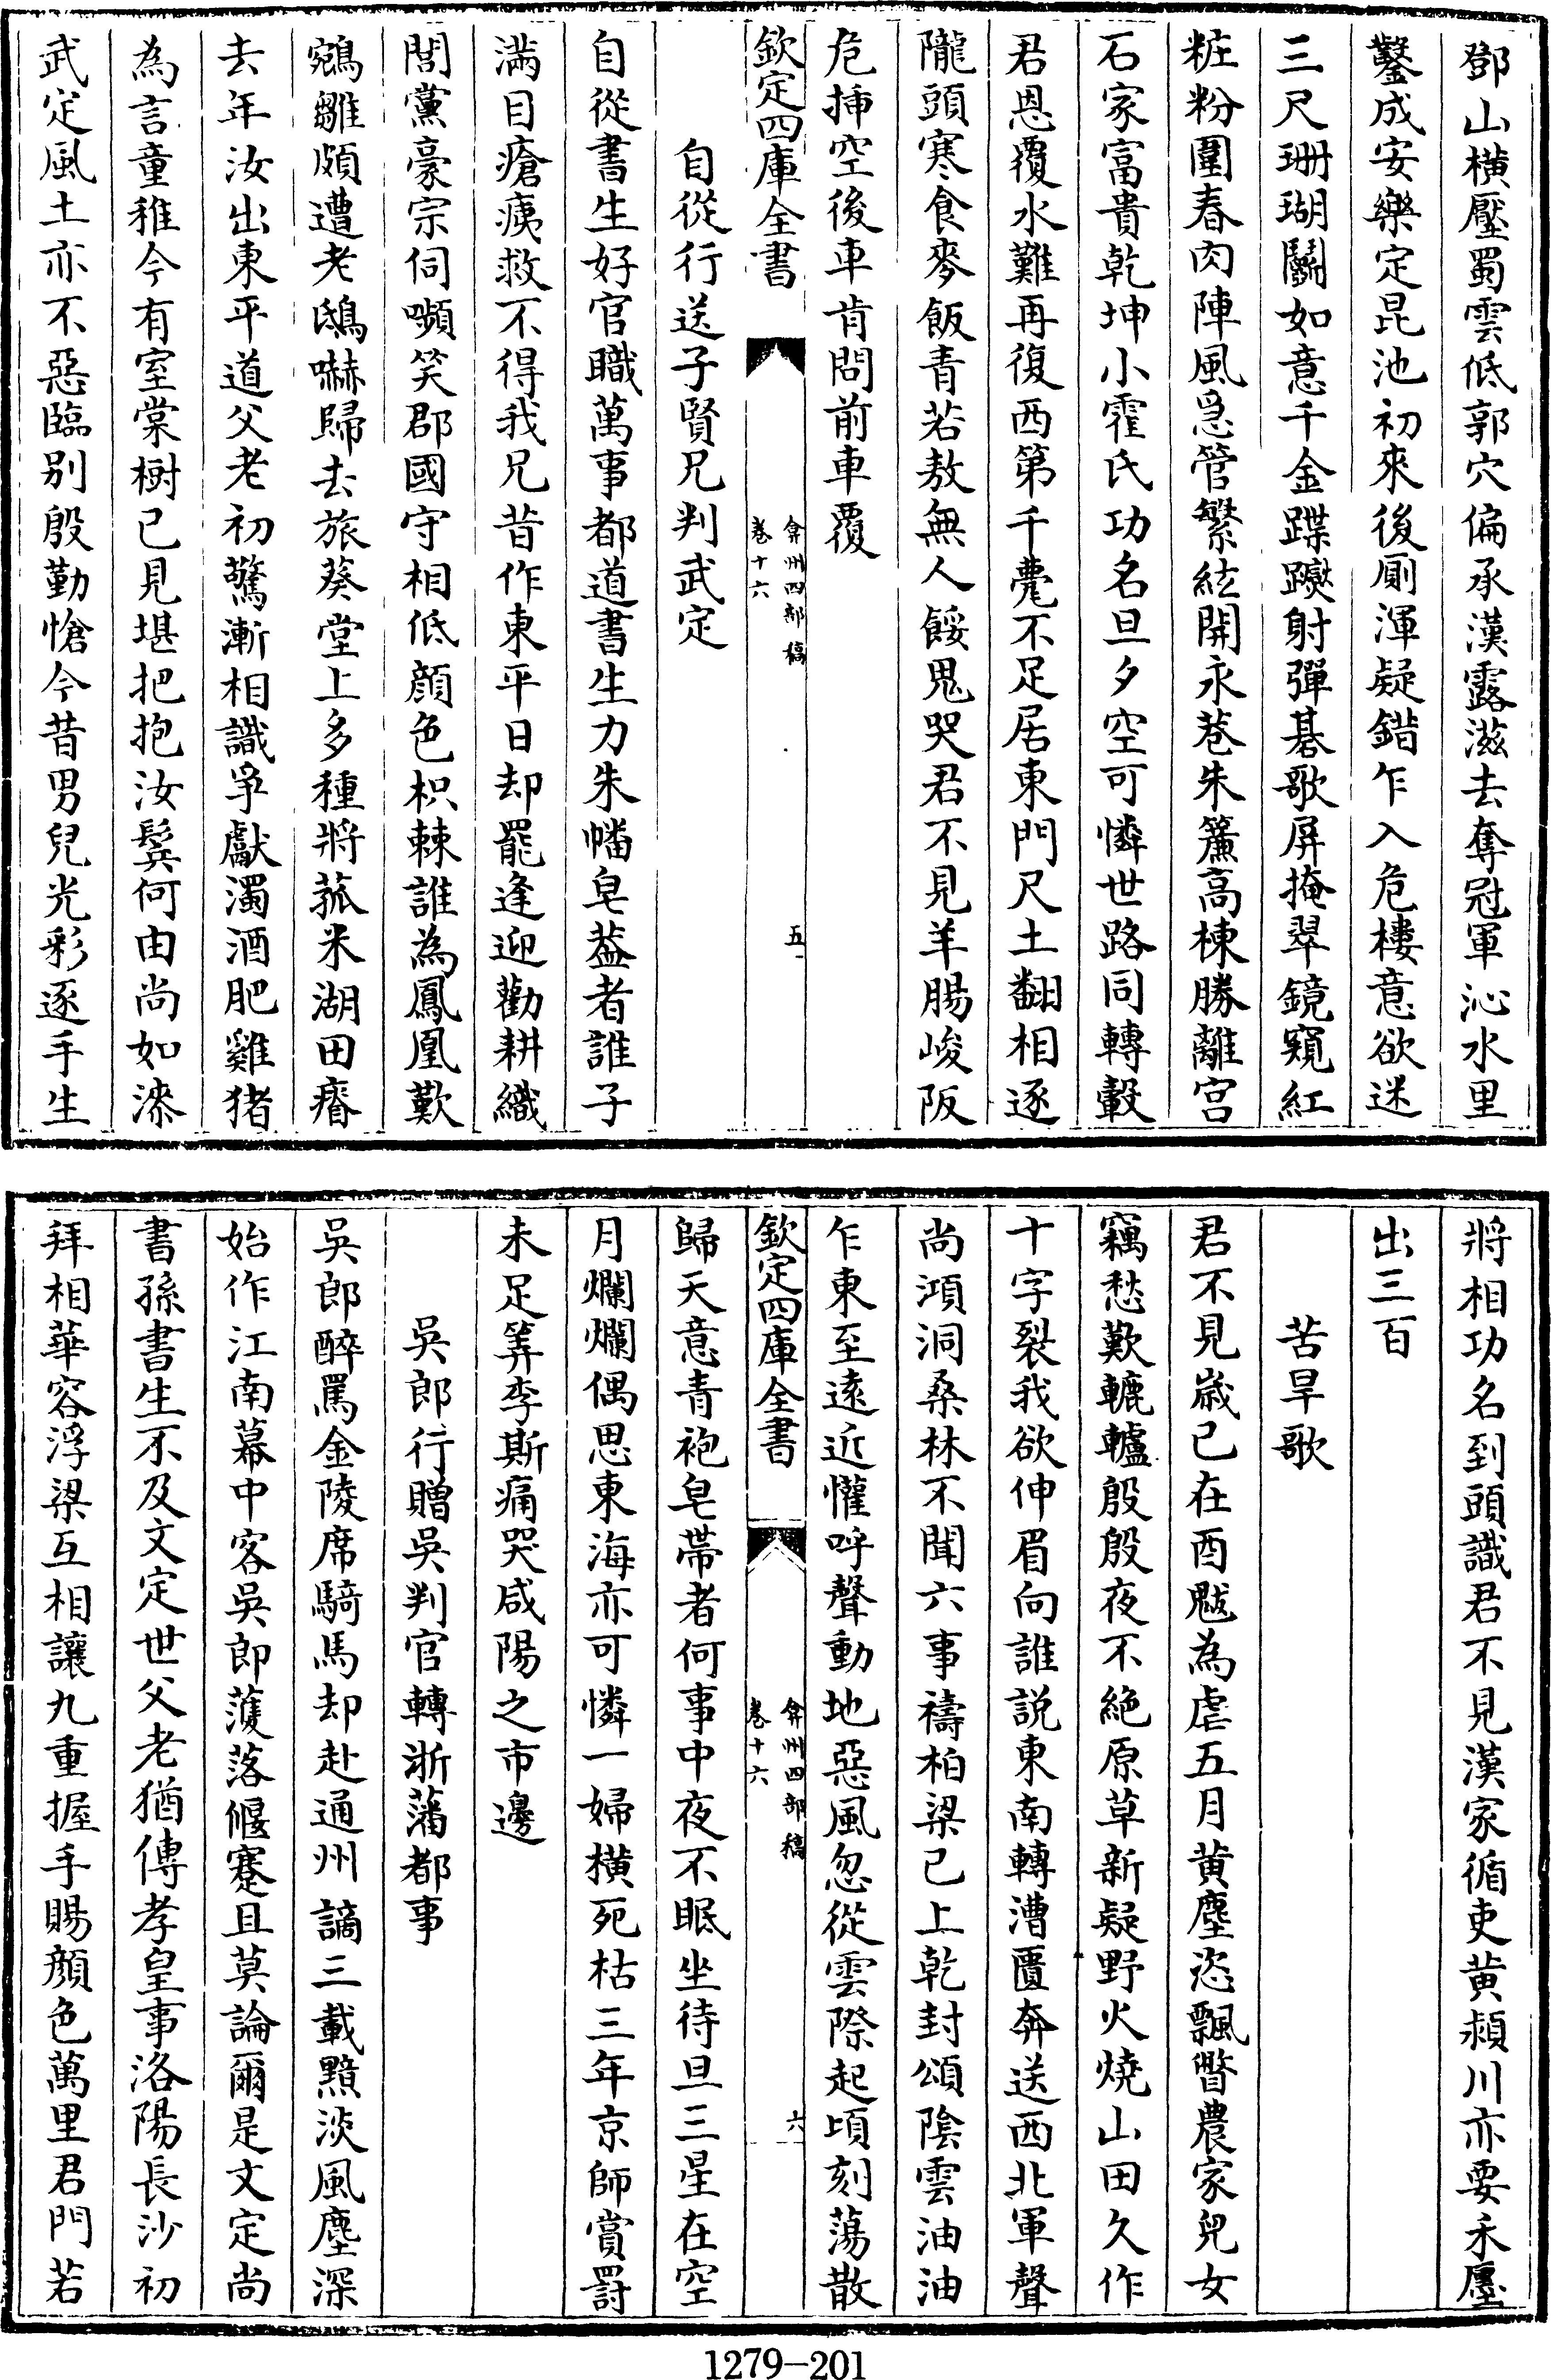 鄧山横壓蜀雲低郭穴偏承漢露滋去奪冠軍沁水里
鑿成安樂定昆池初來後厠渾疑錯乍入危樓意欲迷
三尺珊瑚鬬如意千金蹀躞射彈碁歌屏掩翠鏡窺紅
粧粉圍春肉陣風急管繁絃開永巷朱簾高棟勝離宫
石家富貴乾坤小霍氏功名旦夕空可憐世路同轉轂
君恩覆水難再復西第千甍不足居東門尺土翻相逐
隴頭寒食麥飯青若敖無人餒鬼哭君不見羊腸峻阪
危挿空後車肯問前車覆
欽定四庫全書
弇州四部稿
卷十六
五
自從行送子賢兄判武定
自從書生好官職萬事都道書生力朱幡皂葢者誰子
滿目瘡痍救不得我兄昔作東平日却罷逢迎勸耕織
閭黨豪宗伺嚬笑郡國守相低顔色枳棘誰為鳳凰歎
鵷雛頗遭老鴟嚇歸去旅葵堂上多種將菰米湖田瘠
去年汝出東平道父老初驚漸相識爭獻濁酒肥雞猪
為言童稚今有室棠樹已見堪把抱汝鬓何由尚如漆
武定風土亦不惡臨别殷勤愴今昔男兒光彩逐手生
將相功名到頭識君不見漢家循吏黄潁川亦要禾壓
出三百
苦旱歌
君不見嵗已在酉魃為虐五月黄塵恣飄瞥農家兒女
竊愁歎轆轤殷殷夜不絶原草新疑野火燒山田久作
十字裂我欲伸眉向誰説東南轉漕匱奔送西北軍聲
尚澒洞桑林不聞六事禱柏梁已上乾封頌陰雲油油
乍東至逺近懽呼聲動地惡風忽從雲際起頃刻蕩散
欽定四庫全書
弇州四部稿
卷十六
六
歸天意青袍皂帶者何事中夜不眠坐待旦三星在空
月爛爛偶思東海亦可憐一婦横死枯三年京師賞罰
未足筭李斯痛哭咸陽之市邊
吳郎行贈吳判官轉浙藩都事
吳郎醉罵金陵席騎馬却赴通州謫三載黯淡風塵深
始作江南幕中客吳郎濩落偃蹇且莫論爾是文定尚
書孫書生不及文定世父老猶傳孝皇事洛陽長沙初
拜相華容浮梁互相讓九重握手賜顔色萬里君門若
1279-201